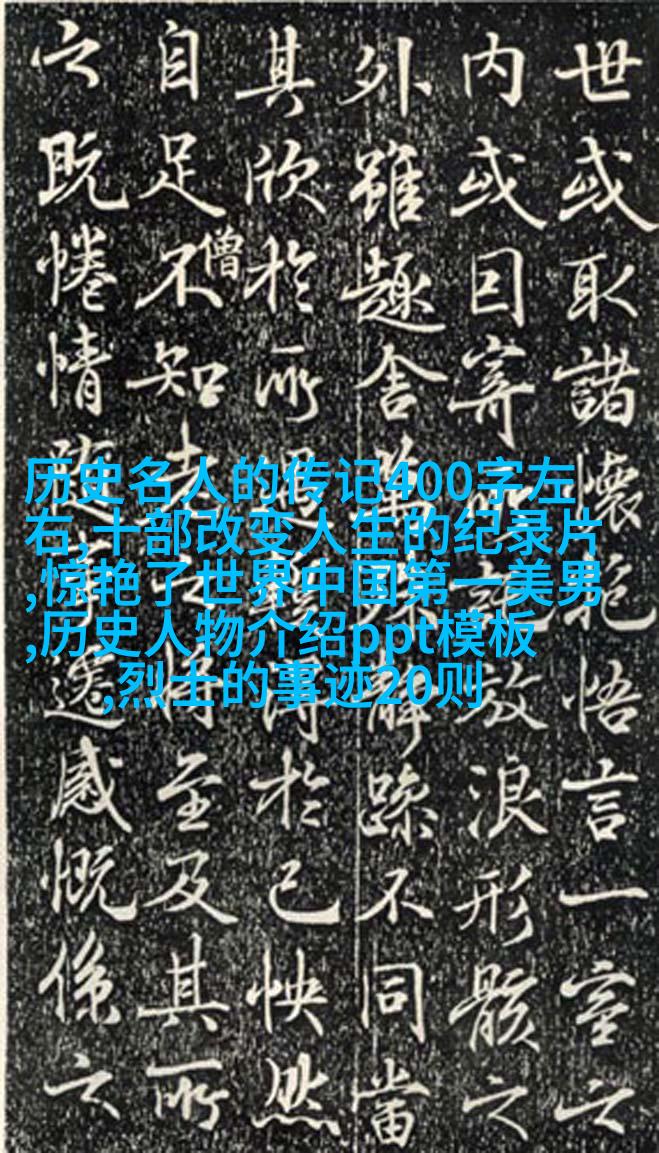 世或取諸懷抱悟言一室之
内或因寄所託放浪形骸之
外雖趣舍萬殊靜躁不同當
其欣於所遇蹔得於己怏然
自足不知老之將至及其所
僧
之既惓情隨事遷感慨係之
历史名人的传记400字左
右,十部改变人生的纪录片
,惊艳了世界中国第一美男
,历史人物介绍ppt模板
,烈士的事迹20则